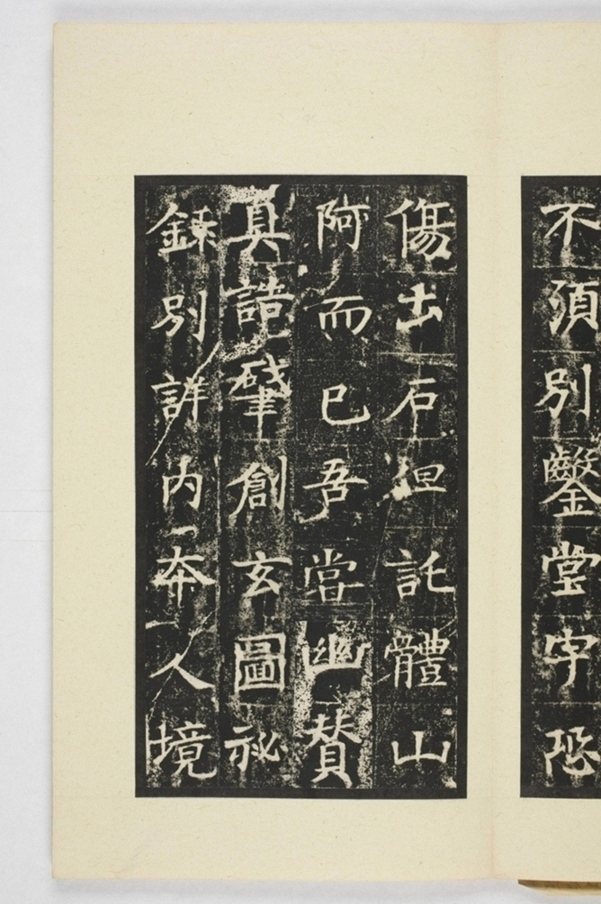 不須別鑿堂宇恐
傷土石但託體山
阿而已吾當幽贊
真誥肇創玄圖祕
錄別詳內本人境